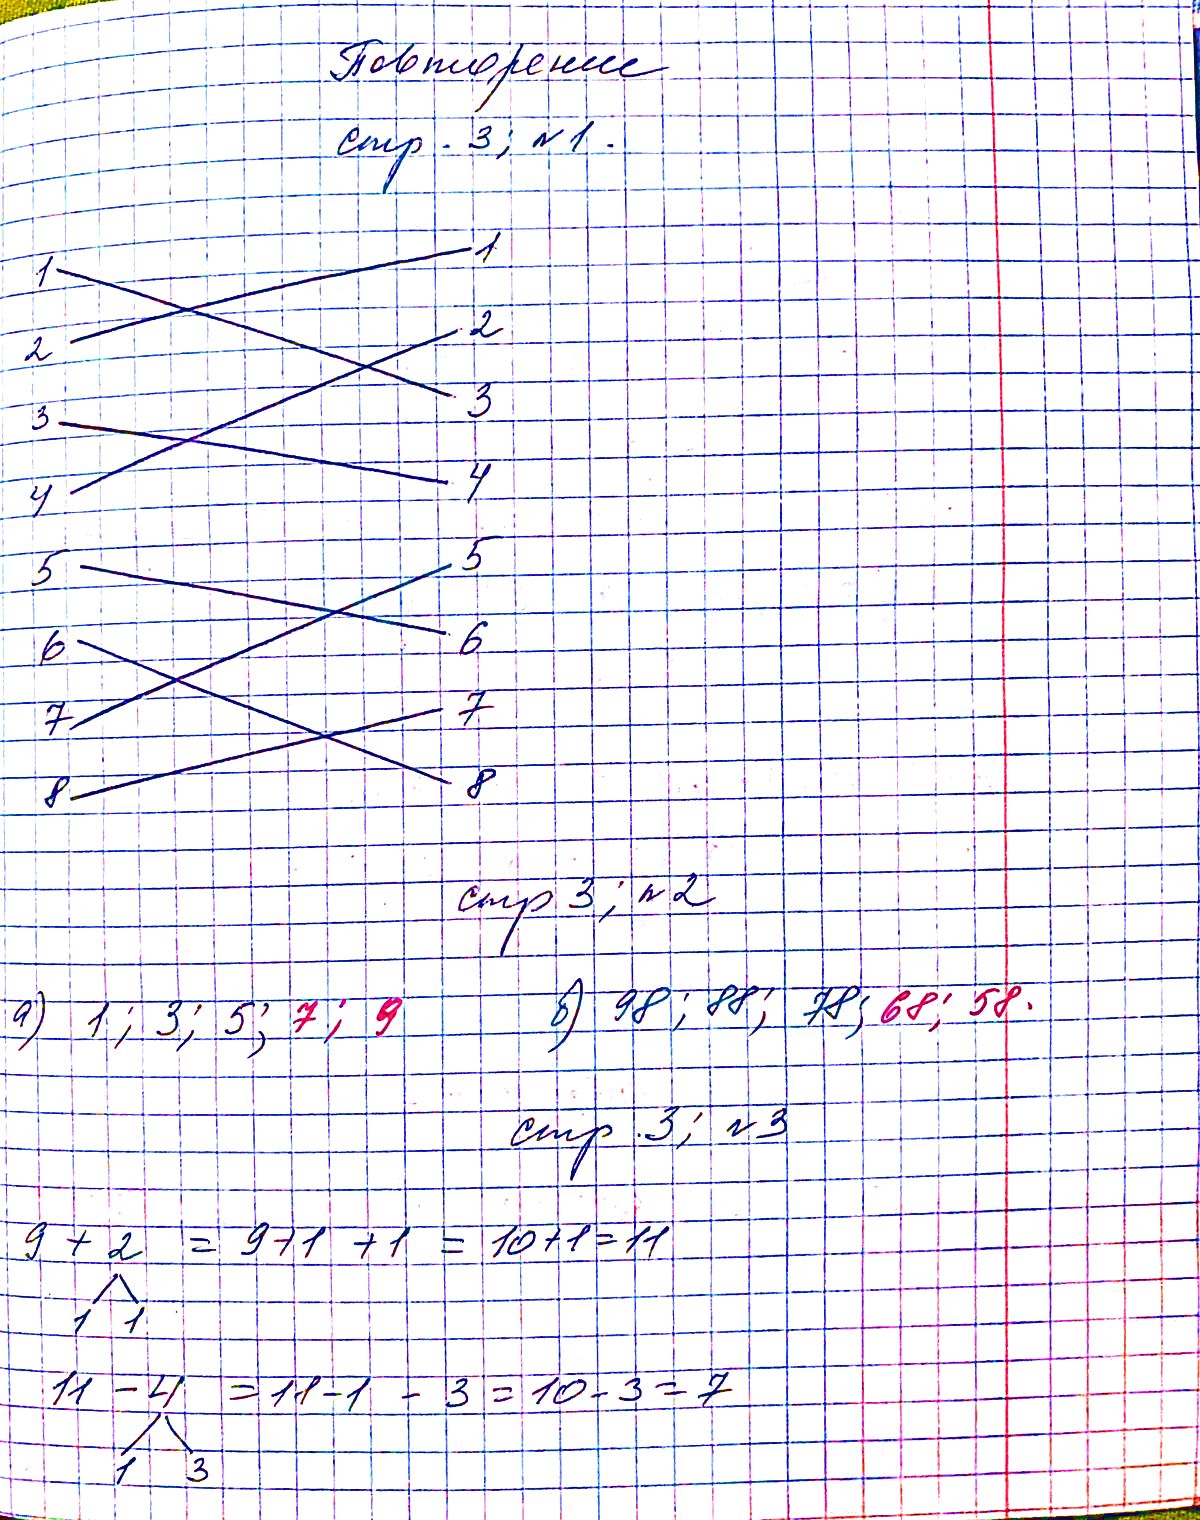 Повторение
стр. 3; №1.
1 1
2 2
3 3
4 4
5 5
6 6
7 7
8 8
стр 3; №2
а) 1; 3; 5; 7; 9 б) 98; 88; 78; 68; 58.
стр. 3; №3
9 + 2 = 9+1 +1 = 10+1=11
1 1
11 - 4 = 11-1 - 3 = 10-3=7
1 3